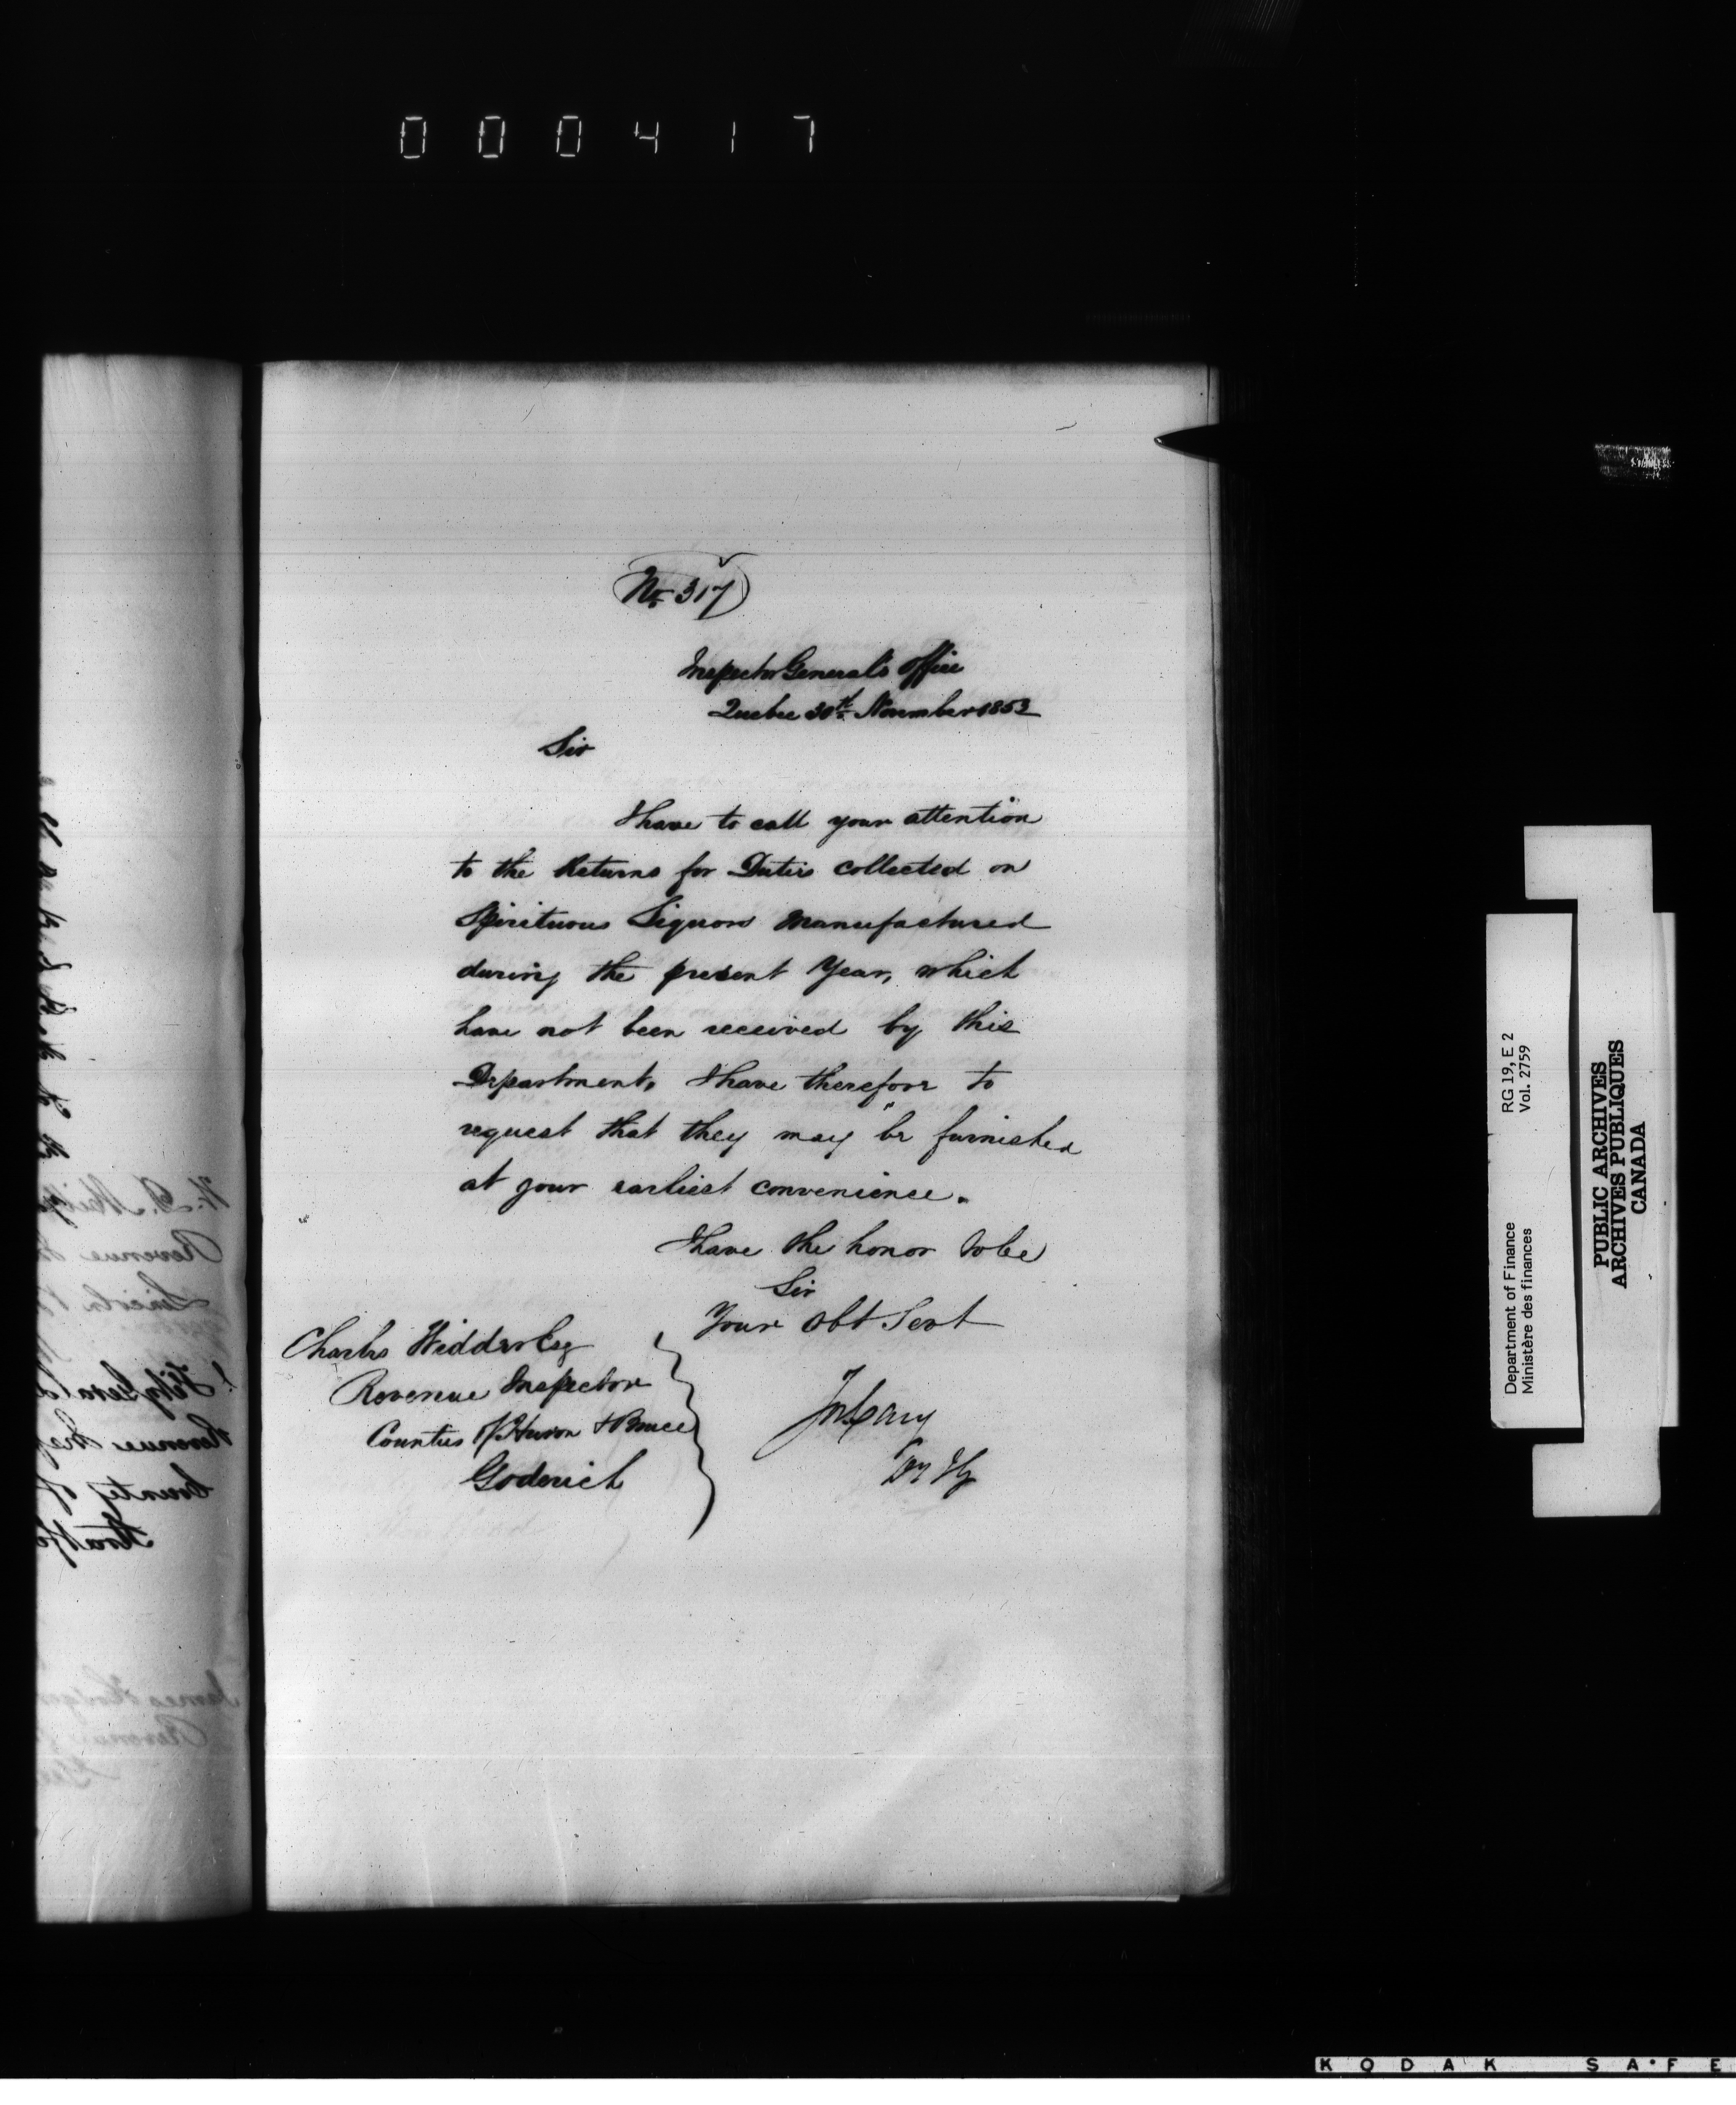 000417
No. 317
Inspector General's Office
Quebec 30th November 1853
Sir
I have to call your attention
to the Returns for Duties collected on
Spirituous Liquors manufactured
during the present Year, which
have not been received by this
Department, I have therefore to
request that they may be furnished
at your earliest convenience.
I have the honor to be
Sir
Your Obt Servt
Charles Widder Esq
Revenue Inspector
Counties of Huron & Bruce
Goderich
Jos Cary
Dy Ig
Department of Finance RG 19, E 2
Ministère des finances Vol. 2759
PUBLIC ARCHIVES
ARCHIVES PUBLIQUES
CANADA
KODAK SAFE